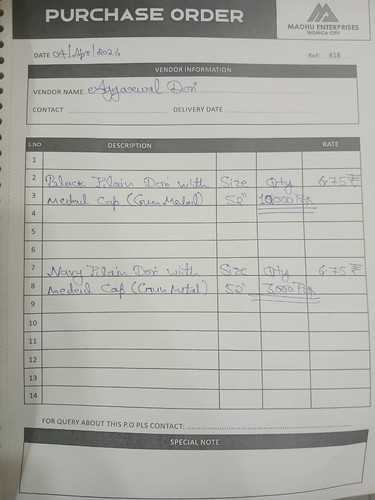 PURCHASE ORDER
MADHU ENTERPRISES
TRONICA CITY
DATE 04/Apr/2026 Ref: 418
VENDOR INFORMATION
VENDOR NAME Aggarwal Dori
CONTACT DELIVERY DATE
S.NO DESCRIPTION RATE
1
2 Black Plain Dori with Size Qty 6.75 ₹
3 Medail Cap (Gun Metal) 52" 10000 Pcs
4
5
6
7 Navy Plain Dori with Size Qty 6.75 ₹
8 Medail Cap (Gun Metal) 52" 3000 Pcs
9
10
11
12
13
14
FOR QUERY ABOUT THIS P.O PLS CONTACT:
SPECIAL NOTE